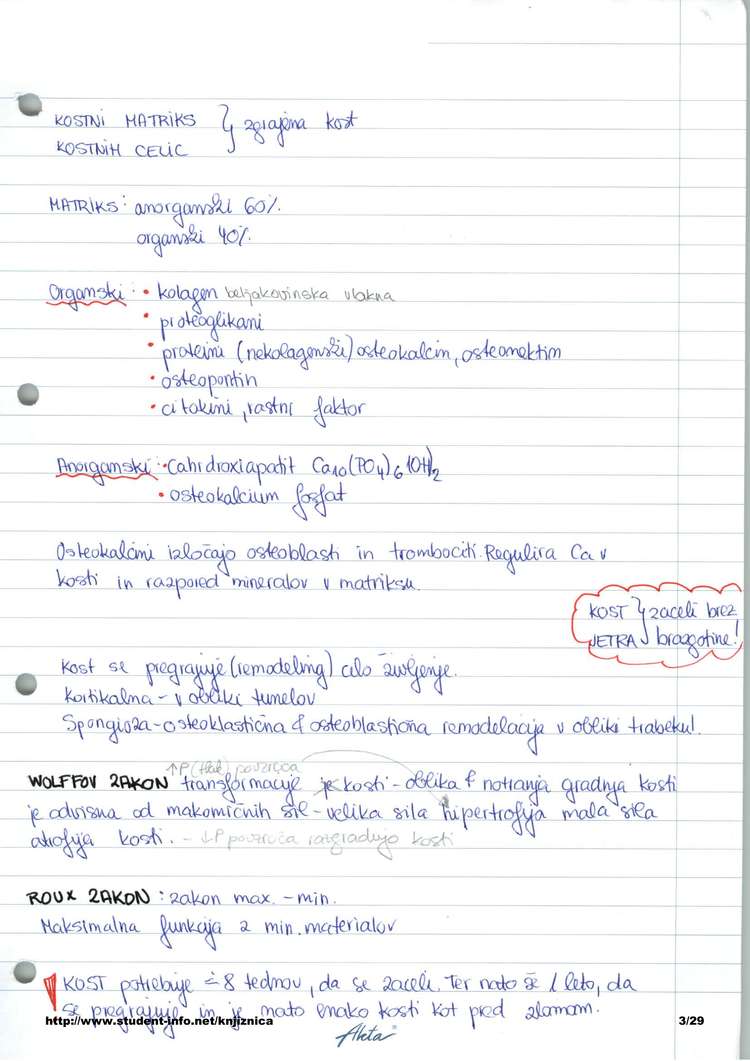 KOSTNI MATRIKS } zgrajena kost
KOSTNIH CELIC
MATRIKS: anorganski 60%.
organski 40%.
Organski: • kolagen beljakovinska vlakna
• proteoglikani
• proteini (nekolagenski) osteokalcin, osteonektin
• osteopontin
• citokini, rastni faktor
Anorganski: • Cahidroxiapatit Ca10(PO4)6(OH)2
• osteokalcium fosfat
Osteokalcini izločajo osteoblasti in trombociti. Regulira Ca v
kosti in razpored mineralov v matriksu.
KOST } zaceli brez
JETRA brazgotine!
Kost se pregrajuje (remodeling) celo življenje.
Kortikalna - v obliki tunelov
Spongioza - osteoklastična & osteoblastična remodelacija v obliki trabekul.
↑P (tlak) povzroča
WOLFFOV ZAKON transformacije je kosti - oblika & notranja gradnja kosti
je odvisna od makomičnih sil - velika sila hipertrofija mala sila
atrofija kosti. - ↓P povzroča razgradnjo kosti
ROUX ZAKON: zakon max. - min.
Maksimalna funkcija z min. materialov
KOST potrebuje ≐ 8 tednov, da se zaceli. Ter nato še 1 leto, da
se pregrajuje in je nato enako kosti kot pred zlomom.
http://www.student-info.net/knjiznica
3/29